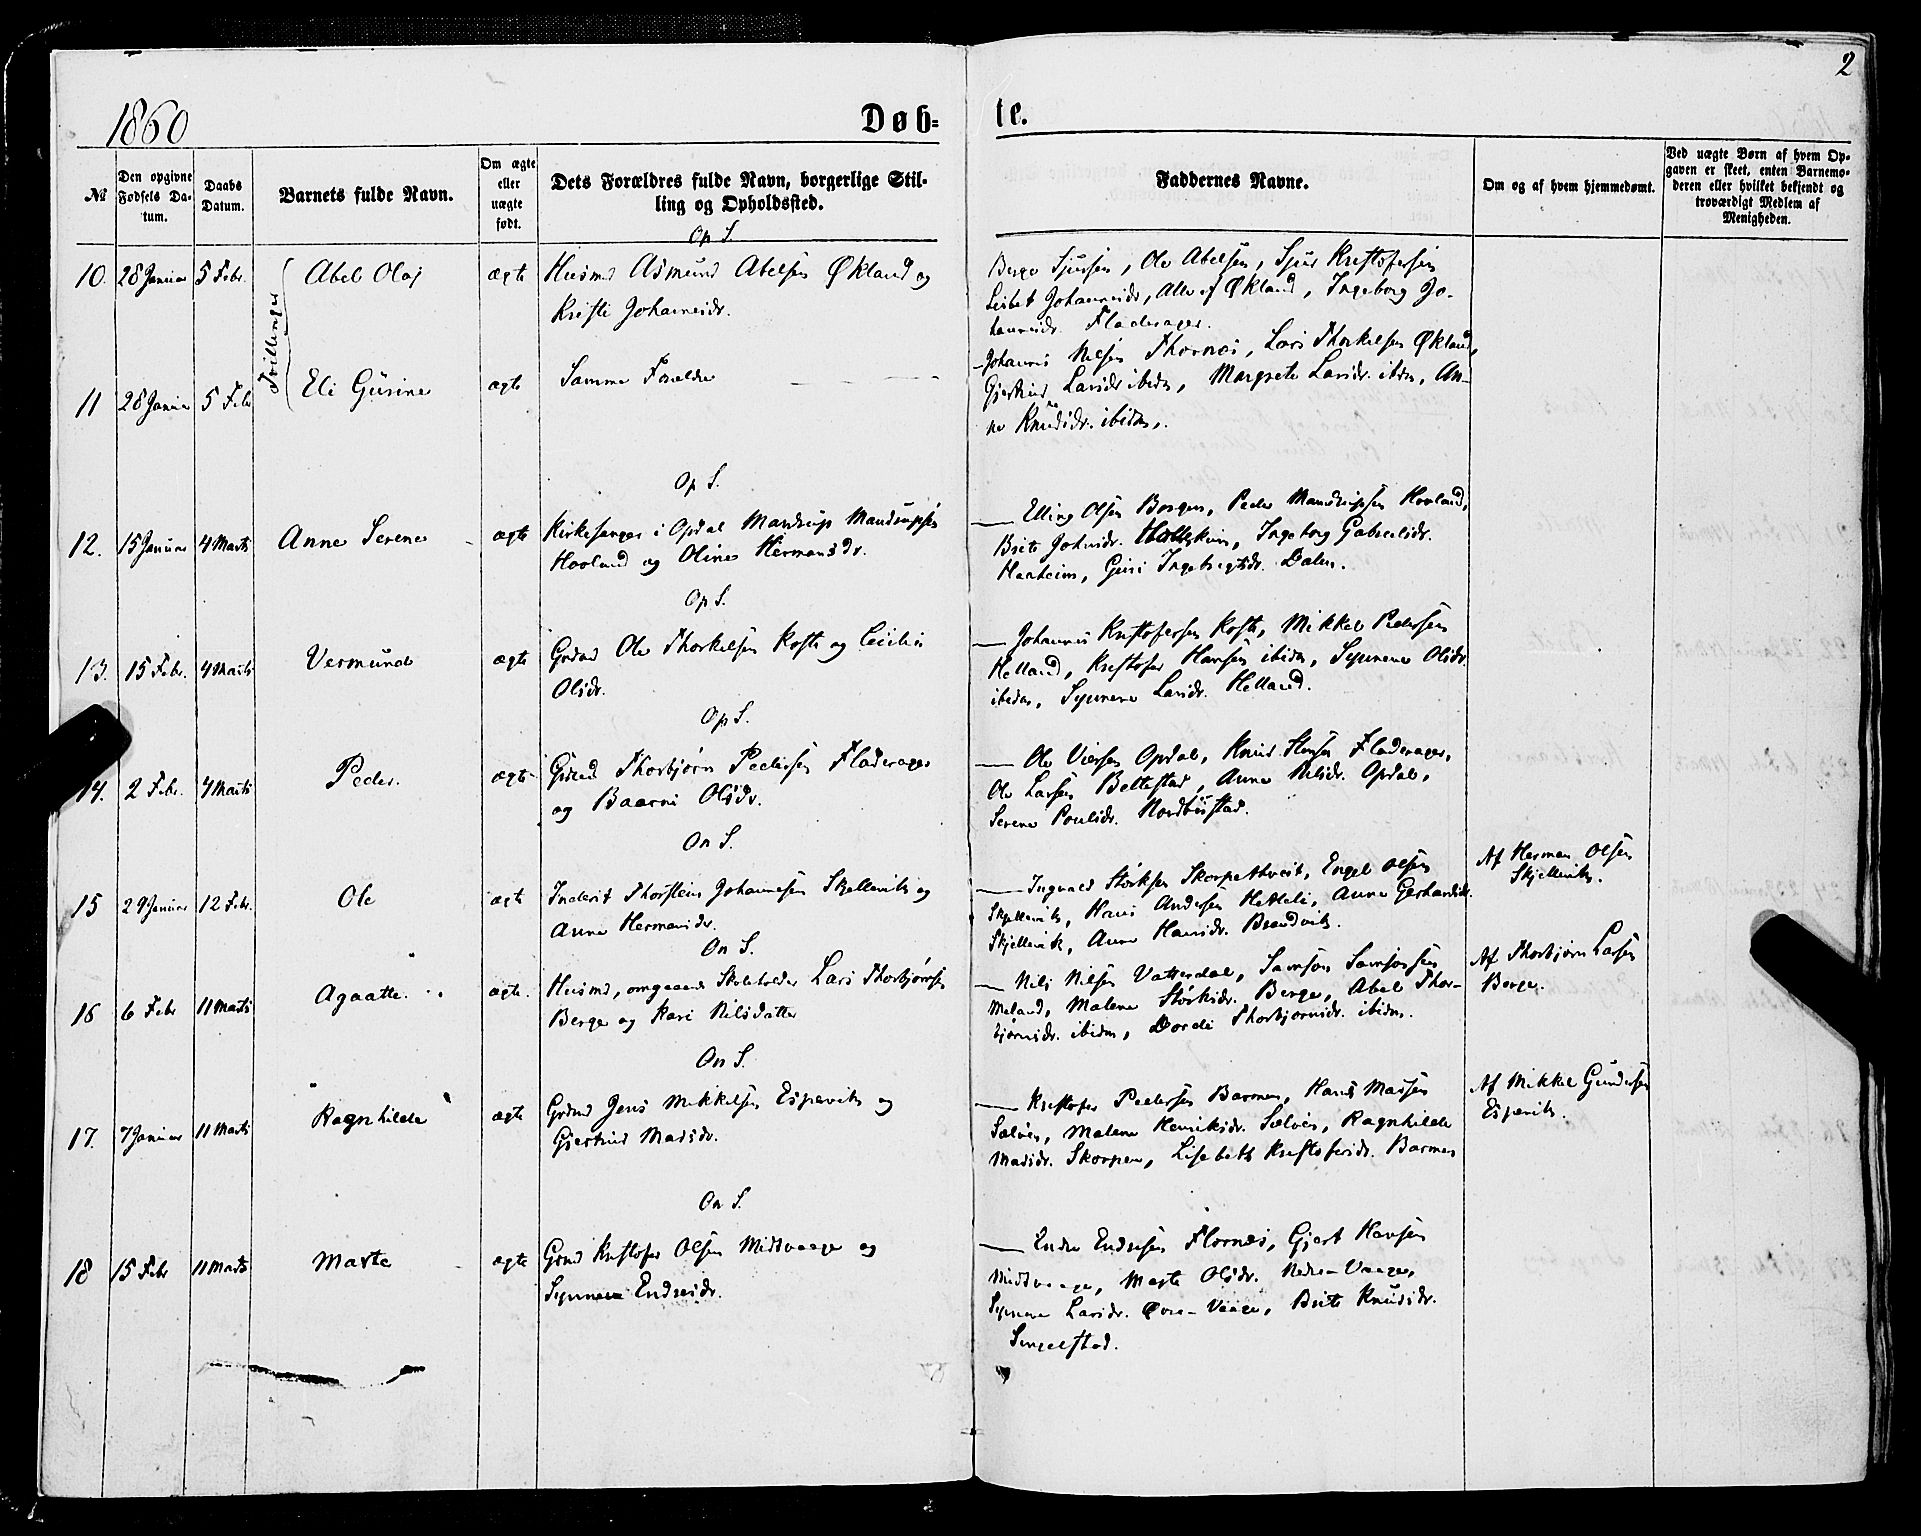 2
1860
Døb-
te.
№
Den opgivne Fødsels Da-tum.
Daabs Datum.
Barnets fulde Navn.
Om ægte eller uægte født.
Dets Forældres fulde Navn, borgerlige Stil-
ling og Opholdssted.
Faddernes Navne.
Om og af hvem hjemmedøbt.
Ved uægte Børn af hvem Op-
gaven er skeet, enten Barnemo-
deren eller hvilket bekjendt og
troværdigt Medlem af
Menigheden.
Op S.
10. 28 Januar 5 Febr. Abel Olaj ægte Husmd Asmund Abelsen Økland og
Kristi Johannesdr.
Tvillinger
Berge Sjursen, Ole Abelsen, Sjur Kristofersen
Lisbet Johannesdr, Alle af Økland, Ingeborg Jo-
hannesdr. Fladerager.
11 28 Januar 5 Febr Eli Gurine ægte Samme Forældre
Johannes Nilsen Thornæs, Lars Thorkelsen Økland,
Gjertrud Larsdr ibidm, Margrete Larsdr. ibdm, An-
ne Knudsdr. ibidm.
Op S.
12. 15 Januar 4 Marts Anne Serene ægte Kirkesanger i Opdal Mandrup Mandrupsen
Hovland og Oline Hermansdr.
Elling Olsen Borgen, Peder Mandrupsen Hovland,
Brite Johnsdr. Ingeborg Gabrielsdr.
Hanheim, Guri Ingebrigtsdr. Dalen.
Op S.
13. 15 Febr. 4 Marts Vermund ægte Grdmd Ole Thorkelsen Hofte og Cecilie
Olsdr.
Johannes Kristofersen Hofte, Mikkel Pedersen
Helland, Kristofer Hansen ibidm, Synneve Olsdr
ibidm, Synneve Larsdr. Helland.
Op S.
14. 2 Febr. 4 Marts Peder. ægte Grdmd Thorbjørn Pedersen Fladerager
og Baarni Olsdr.
Ole Viersen Opdal, Knud Hansen Fladerager,
Ole Larsen Bettestad, Anne Nilsdr. Opdal,
Serene Poulsdr. Nordbustad.
On S.
15 29 Januar 12 Febr. Ole ægte Inderst Thorstein Johannesen Skjellevik og
Anne Hermansdr.
Ingvald Størksen Skorpethveit, Engel Olsen
Skjellevik, Hans Andersen Hetleli, Anne Gerhardsdr.
Skjellevik, Anne Hansdr. Brandvik.
Af Herman Olsen
Skjellevik.
On S.
16 6 Febr 11 Marts Agaatte. ægte. Husmd, omgaaende Skoleholder Lars Thorbjørnsen
Berge og Kari Nilsdatter
Nils Nilsen Vatterdal, Samson Samsonsen
Meland, Malene Størksdr. Berge, Abel Thor-
bjørnsdr. ibidm, Dordi Thorbjørnsdr. ibidm.
Af Thorbjørn Larsen
Berge.
On S.
17. 7 Januar 11 Marts Ragnhilde ægte Grdmd Jens Mikkelsen Espevik og
Gjertrud Madsdr.
Kristofer Pedersen Barmen, Hans Madsen
Sælöen, Malene Henriksdr. Sælöen, Ragnhilde
Madsdr. Skorpen, Lisebeth Kristofersdr. Barmen
Af Mikkel Gundersen
Espevik.
On S.
18 15 Febr 11 Marts Marte ægte Grmd Kristofer Olsen Midtvaage og
Synneve Endresdr.
Endre Endresen Flornæs, Gjert Hansen
Midtvaage, Marte Olsdr. Nedre-Vaage,
Synneve Larsdr. Øvre-Vaage, Brite Knudsdr.
Singelstad.